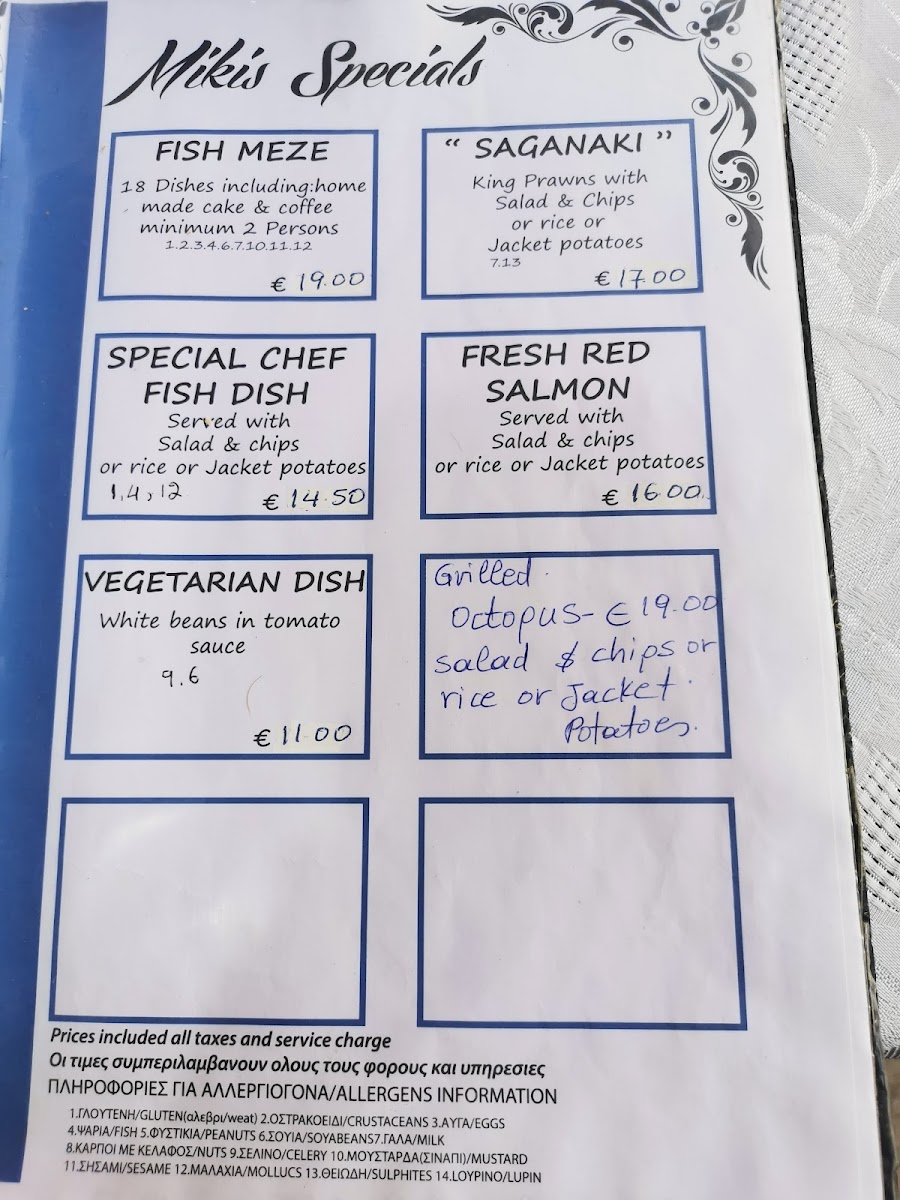 Mikis Specials
FISH MEZE
18 Dishes including:home
made cake & coffee
minimum 2 Persons
1.2.3.4.6.7.10.11.12
€ 19.00
“ SAGANAKI ”
King Prawns with
Salad & Chips
or rice or
Jacket potatoes
7.13
€ 17.00
SPECIAL CHEF
FISH DISH
Served with
Salad & chips
or rice or Jacket potatoes
1,4,12
€ 14.50
FRESH RED
SALMON
Served with
Salad & chips
or rice or Jacket potatoes
€ 16.00
VEGETARIAN DISH
White beans in tomato
sauce
9.6
€ 11.00
Grilled
Octopus- € 19.00
salad & chips or
rice or Jacket.
Potatoes.
Prices included all taxes and service charge
Οι τιμες συμπεριλαμβανουν ολους τους φορους και υπηρεσιες
ΠΛΗΡΟΦΟΡΙΕΣ ΓΙΑ ΑΛΛΕΡΓΙΟΓΟΝΑ/ALLERGENS INFORMATION
1.ΓΛΟΥΤΕΝΗ/GLUTEN(αλεβρι/weat) 2.ΟΣΤΡΑΚΟΕΙΔΙ/CRUSTACEANS 3.ΑΥΓΑ/EGGS
4.ΨΑΡΙΑ/FISH 5.ΦΥΣΤΙΚΙΑ/PEANUTS 6.ΣΟΥΙΑ/SOYABEANS7.ΓΑΛΑ/MILK
8.ΚΑΡΠΟΙ ΜΕ ΚΕΛΑΦΟΣ/NUTS 9.ΣΕΛΙΝΟ/CELERY 10.ΜΟΥΣΤΑΡΔΑ(ΣΙΝΑΠΙ)/MUSTARD
11.ΣΗΣΑΜΙ/SESAME 12.ΜΑΛΑΧΙΑ/MOLLUCS 13.ΘΕΙΩΔΗ/SULPHITES 14.ΛΟΥΡΙΝΟ/LUPIN